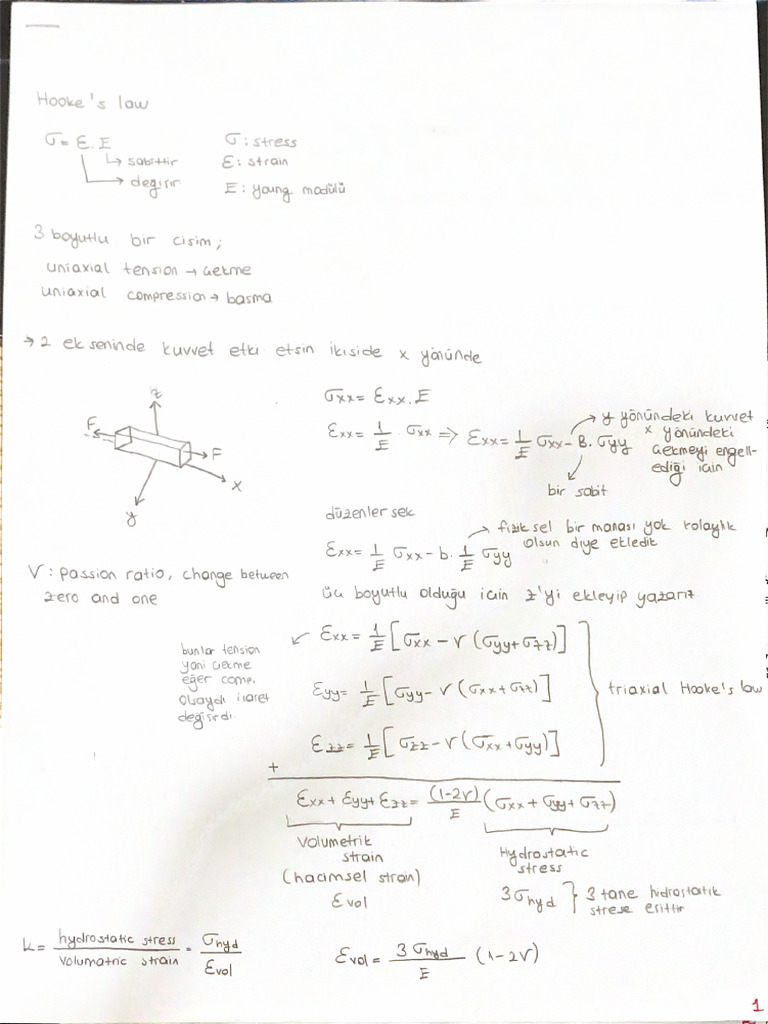 Hooke's law
σ = ε . E
σ : stress
↳ sabittir
ε : strain
→ değişir
E : young modülü
3 boyutlu bir cisim ;
uniaxial tension → çekme
uniaxial compression → basma
→ 2 ekseninde kuvvet etki etsin ikiside x yönünde
z
F
F
x
y
σxx = εxx . E
εxx = 1/E . σxx => εxx = 1/E σxx - B. σyy
→ y yönündeki kuvvet
x yönündeki
çekmeyi engell-
ediği için
bir sabit
düzenlersek
εxx = 1/E σxx - b. 1/E σyy
→ fiziksel bir manası yok kolaylık
olsun diye ekledik
V : passion ratio, change between
zero and one
üç boyutlu olduğu için z'yi ekleyip yazarız
bunlar tension
yani çekme
eğer comp.
olsaydı işaret
değişirdi
εxx = 1/E [σxx - V (σyy + σzz)]
εyy = 1/E [σyy - V (σxx + σzz)]
εzz = 1/E [σzz - V (σxx + σyy)]
triaxial Hooke's law
+
εxx + εyy + εzz = (1-2V)/E (σxx + σyy + σzz)
Volumetrik
strain
(hacimsel strain)
εvol
Hydrostatic
stress
3σhyd } 3 tane hidrostatik
strese eşittir
k = hydrostatic stress / volumatric strain = σhyd / εvol
εvol = 3 σhyd / E (1-2V)
1